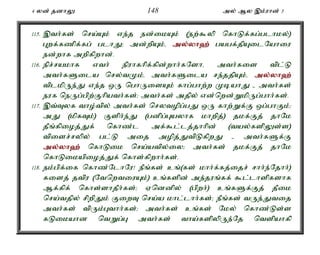 4 லன் தனாலூ 148 அல் ஆல இம்ரான் 3
115. இவர்கள் செய்யும் எந்த நன்மையும் (நற்கூலி கொடுக்கப்படாமல்)
புறக்கணிக்கப் படாது. அன்றியும், அல்லாஹ் பயபக்தியுடையோரை
நன்றாக அறிகிறான்.
116. நிச்சயமாக எவர் நிராகரிக்கின்றார்களோ, அவர்களை விட்டு
அவர்களுடைய செல்வமும், அவர்களுடைய சந்ததியும், அல்லாஹ்
விடமிருந்து எந்த ஒரு பொருளையும் காப்பாற்ற முடியாது - அவர்கள்
நரக நெருப்பிற்குரியவர்கள்; அவர்கள் அதில் என்றென்றுமிருப்பார்கள்.
117. இவ்வுலக வாழ்வில் அவர்கள் செலவழிப்பது ஒரு காற்றுக்கு ஒப்பாகும்;
அது (மிகவும்) குளிர்ந்து (பனிப்புயலாக மாறித்) தமக்குத் தாமே
தீங்கிழைத்துக் கொண்ட அக்கூட்டத்தாரின் (வயல்களிலுள்ள)
விளைச்சலில் பட்டு அதை அழித்துவிடுகிறது - அவர்களுக்கு
அல்லாஹ் கொடுமை செய்யவில்லை; அவர்கள் தமக்குத் தாமே
கொடுமையிழைத்துக் கொள்கிறார்கள்.
118. நம்பிக்கை கொண்டோரே! நீங்கள் உங்(கள் மார்க்கத்தைச் சார்ந்தோர்)
களைத் தவிர (வேறெவரையும்) உங்களின் அந்தரங்கக் கூட்டாளிகளாக
ஆக்கிக் கொள்ளாதீர்கள்; ஏனெனில் (பிறர்) உங்களுக்குத் தீமை
செய்வதில் சிறிதும் குறைவு செய்ய மாட்டார்கள்; நீங்கள் வருந்துவதை
அவர்கள் விரும்புவார்கள்; அவர்கள் உங்கள் மேல் கொண்டுள்ள
கடுமையான வெறுப்பு அவர்கள் வாய்களிலிருந்தே வெளியாகி